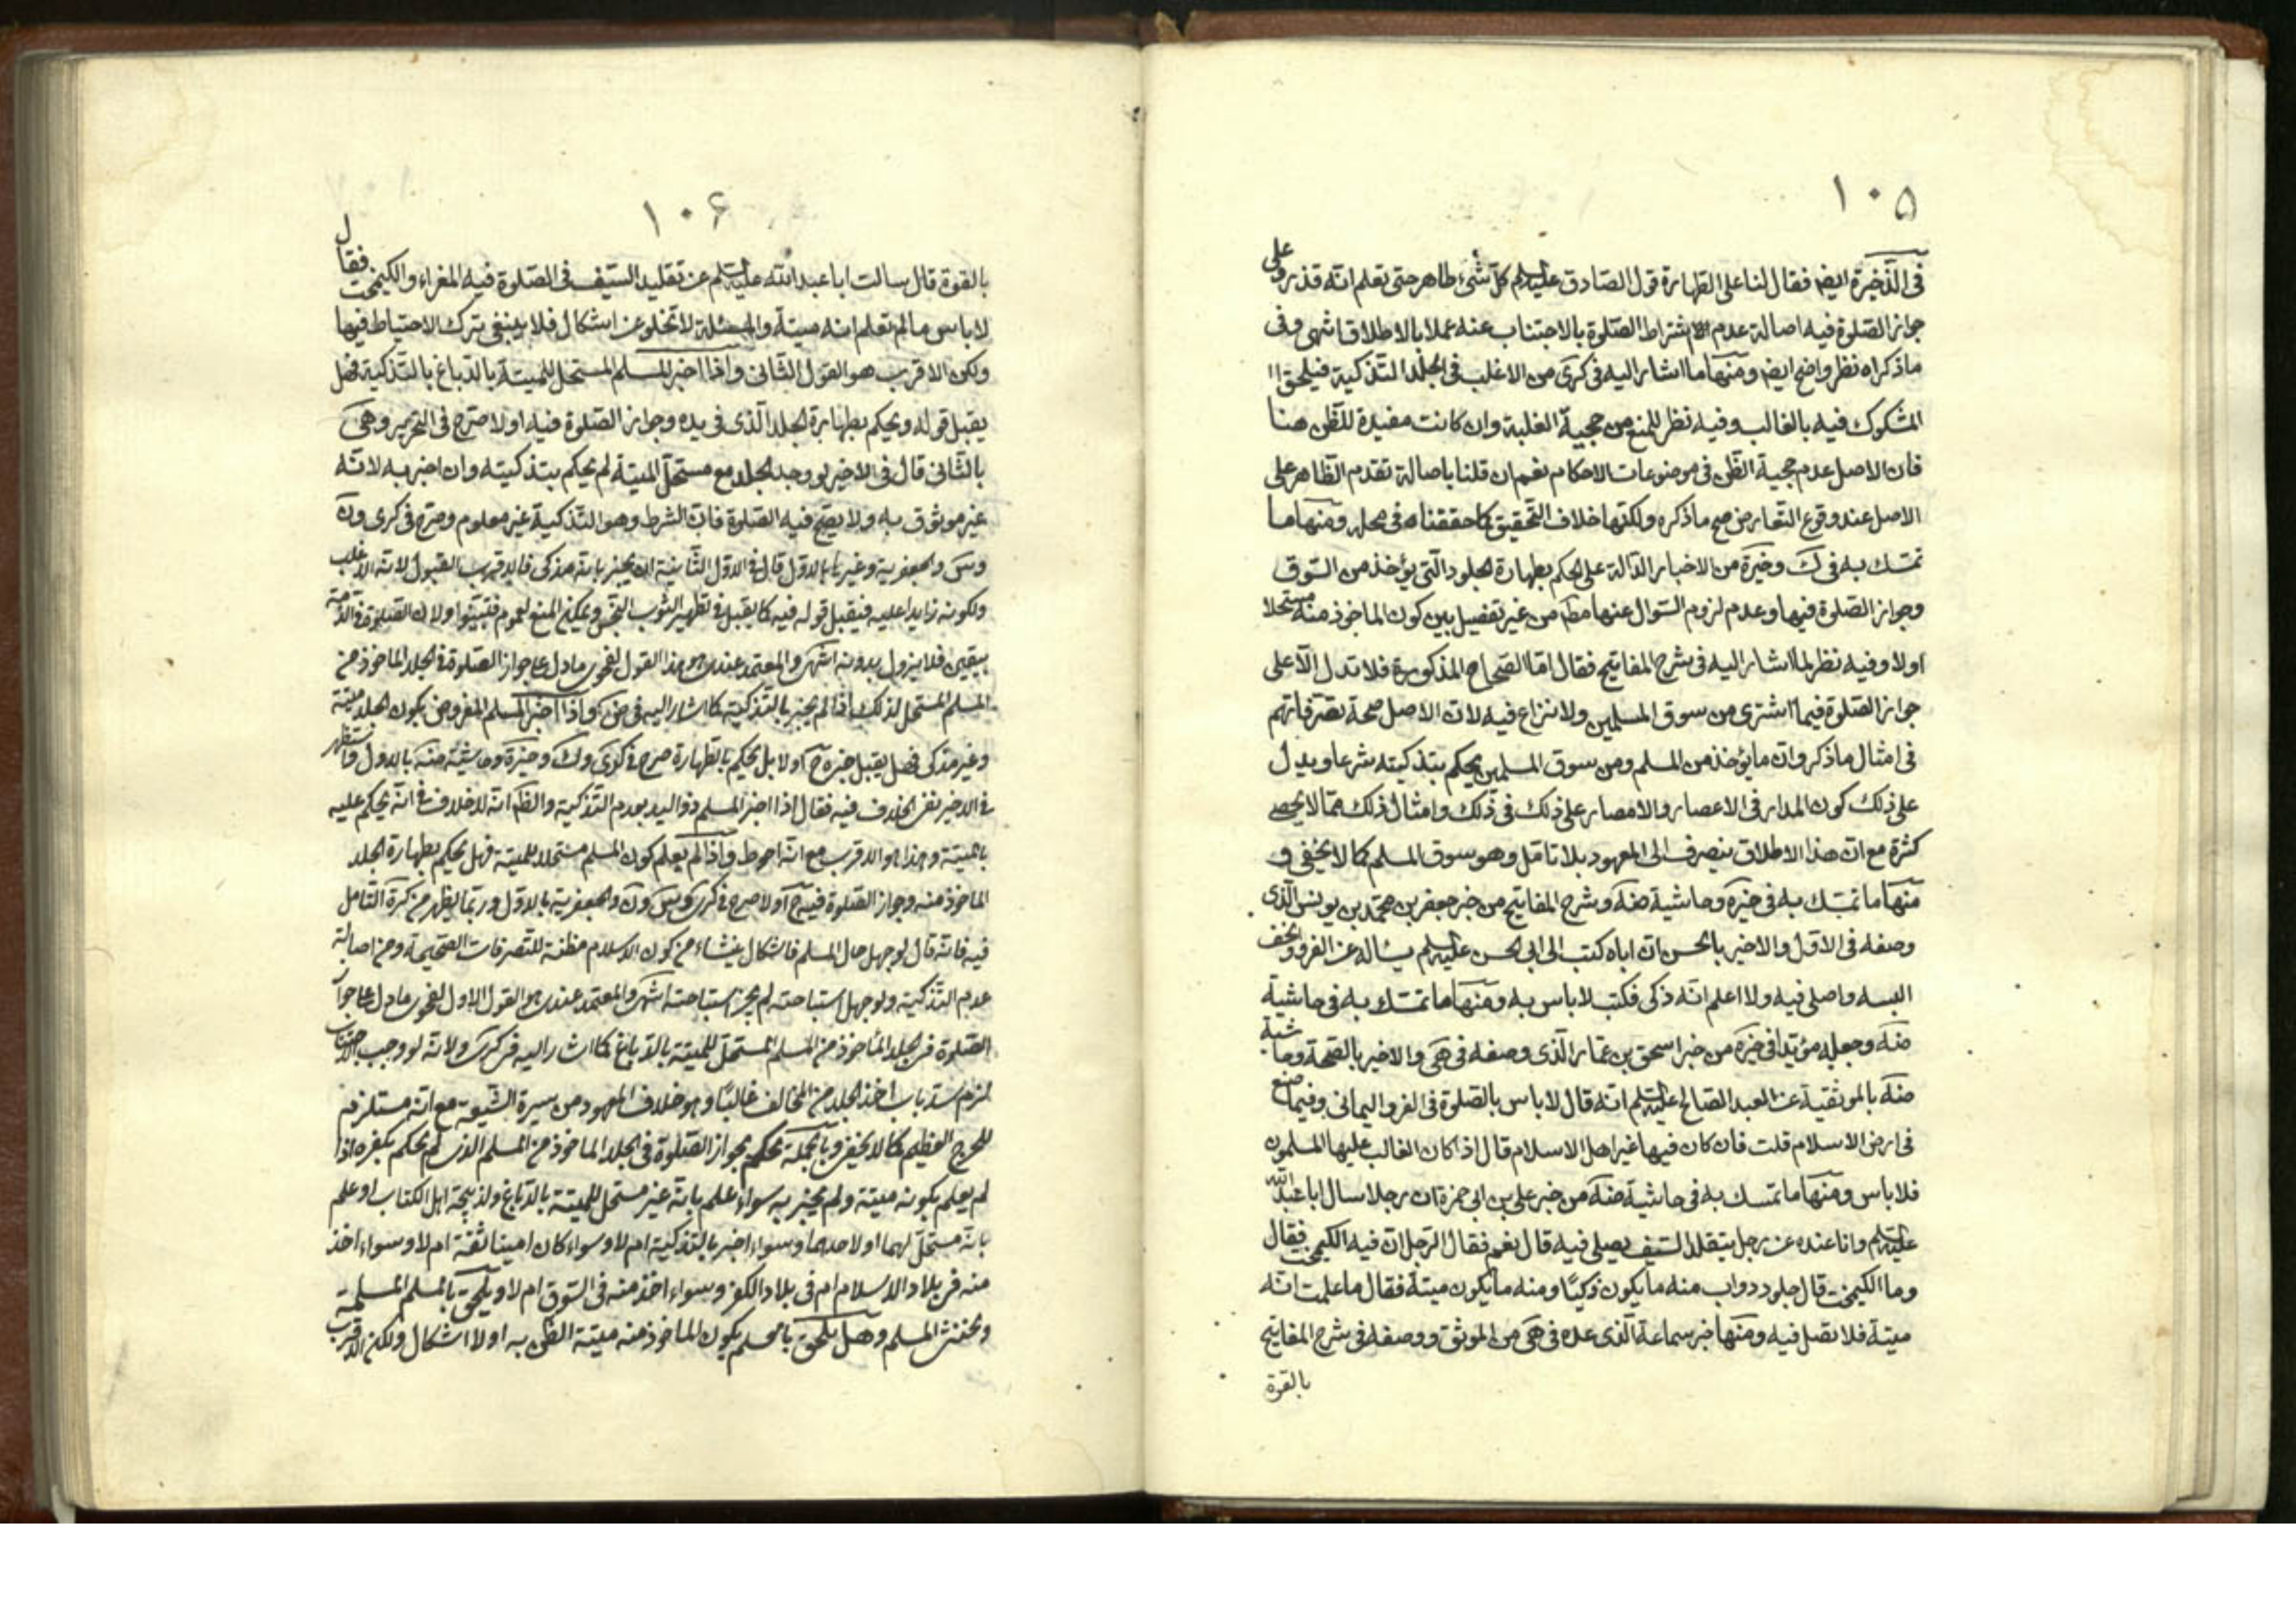 ١٠٥
في الذخيرة ايضا فقال لنا على الطهارة قول الصادق عليه السلم كل شيء طاهر حتى تعلم انه قذر وعلى
جواز الصلوة فيه اصالة عدم اشتراط الصلوة بالاجتناب عنه عملا بالاطلاق انتهى وفى
ما ذكراه نظر واضح ايضا ومنها ما اشار اليه فى كرى من الاغلب فى الجلد التذكية فيلحق
المشكوك فيه بالغالب وفيه نظر للمنع من حجية الغلبة وان كانت مفيدة للظن هنا
فان الاصل عدم حجية الظن فى موضوعات الاحكام نعم ان قلنا باصالة تقدم الظاهر على
الاصل عند وقوع التعارض صح ما ذكره ولكنها خلاف التحقيق كما حققناه فى محله ومنها ما
تمسك به فى ك وخيرة من الاخبار الدالة على الحكم بطهارة الجلود التى يؤخذ من السوق
وجواز الصلوة فيها وعدم لزوم السؤال عنها مط من غير تفصيل بين كون الماخوذ منه مستحلا
اولا وفيه نظر لما اشار اليه فى شرح المفاتيح فقال اما الصحاح المذكورة فلا تدل الا على
جواز الصلوة فيما اشترى من سوق المسلمين ولا نزاع فيه لان الاصل صحة تصرفاتهم
فى امثال ما ذكر وان ما يؤخذ من المسلم ومن سوق المسلمين يحكم بتذكيته شرعا ويدل
على ذلك كون المدار فى الاعصار والامصار على ذلك فى ذلك وامثال ذلك مما لا يحصى
كثرة مع ان هذا الاطلاق ينصرف الى المعهود بلا تامل وهو سوق المسلم كما لا يخفى و
منها ما تمسك به فى خيرة وحاشية ضه وشرح المفاتيح من خبر جعفر بن محمد بن يونس الذى
وصفه فى الاول والاخير بالحسن ان اباه كتب الى ابى الحسن عليه السلم يسأله عن الفرو والخف
البسه واصلى فيه ولا اعلم انه ذكى فكتب لا باس به ومنها ما تمسك به فى حاشية
ضه وجعله مؤيدا فى خيرة من خبر اسحق بن عمار الذى وصفه فى هى والاخير بالصحة وحاشية
ضه بالموثقية عن العبد الصالح عليه السلم انه قال لا باس بالصلوة فى الفرو اليمانى وفيما صنع
فى ارض الاسلام قلت فان كان فيها غير اهل الاسلام قال اذا كان الغالب عليها المسلمون
فلا باس ومنها ما تمسك به فى حاشية ضه من خبر على بن ابى حمزة ان رجلا سال ابا عبد الله
عليه السلم وانا عنده عن رجل يتقلد السيف يصلى فيه قال نعم فقال الرجل ان فيه الكيمخت فقال
وما الكيمخت قال جلود دواب منه ما يكون ذكيا ومنه ما يكون ميتة فقال ما علمت انه
ميتة فلا تصل فيه ومنها خبر سماعة الذى عده فى هى من الموثق ووصفه فى شرح المفاتيح
بالقوة
١٠۶
بالقوة قال سالت ابا عبد الله عليه السلم عن تقليد السيف فى الصلوة فيه المغراء والكيمخت فقال
لا باس ما لم تعلم انه ميتة والمسئلة لا تخلو عن اشكال فلا ينبغى ترك الاحتياط فيها
ولكن الاقرب هو القول الثانى واذا اخبر المسلم المستحل للميتة بالدباغ بالتذكية فهل
يقبل قوله ويحكم بطهارة الجلد الذى فى يده وجواز الصلوة فيه اولا صرح فى التحرير وهى
بالثانى قال فى الاخير لو وجد الجلد مع مستحل الميتة لم يحكم بتذكيته وان اخبر به لانه
غير موثوق به ولا يصح فيه الصلوة فان الشرط وهو التذكية غير معلوم وصرح فى كرى ون
وس والجعفرية وغيرها بالاول قال فى الاول الثانية ان يخبر بانه مذكى فالاقرب القبول لانه الاغلب
ولكونه ذا يد عليه فيقبل قوله فيه كما يقبل فى تطهير الثوب النجس ويمكن المنع لعموم فتبينوا ولان الصلوة فى الذمة
بيقين فلا يزول بدونه انتهى والمعتمد عندى هو هذا القول لفحوى ما دل على جواز الصلوة فى الجلد الماخوذ من
المسلم المستحل لذلك اذا لم يخبر بالتذكية كما اشار اليه فى ض واذا اخبر المسلم المفروض بكون الجلد ميتة
وغير مذكى فهل يقبل خبره ح اولا بل يحكم بالطهارة صرح فى كرى وك وخيرة وحاشية ضه بالاول واستظهر
فى الاخير نفى الخلاف فيه فقال اذا اخبر المسلم ذو اليد بعدم التذكية والظ انه لا خلاف فى انه يحكم عليه
بالميتة وهذا هو الاقرب مع انه احوط واذا لم يعلم كون المسلم مستحلا للميتة فهل يحكم بطهارة الجلد
الماخوذ منه وجواز الصلوة فيه ح اولا صرح فى كرى وس ون والجعفرية بالاول وربما يظهر من كره التامل
فيه فانه قال لو جهل حال المسلم فاشكال ينشاء من كون الاسلام مظنة للتصرفات الصحيحة ومن اصالة
عدم التذكية ولو جهل استباحته لم يجز استباحته انتهى والمعتمد عندى هو القول الاول لفحوى ما دل على جواز
الصلوة فى الجلد المأخوذ من المسلم المستحل للميتة بالدباغ كما اشار اليه فى كرى ولانه لو وجب الاجتناب
لزم سد باب اخذ الجلد من المخالف غالبا وهو خلاف المعهود من سيرة الشيعة مع انه مستلزم
للحرج العظيم كما لا يخفى وبالجملة يحكم بجواز الصلوة فى الجلد الماخوذ من المسلم الذى لم يحكم بكفره اذا
لم يعلم بكونه ميتة ولم يخبر به سواء علم بانه غير مستحل للميتة بالدباغ ولذبيحة اهل الكتاب او علم
بانه مستحل لهما او لاحدهما وسواء اخبر بالتذكية ام لا وسواء كان امينا ثقة ام لا وسواء اخذ
منه فى بلاد الاسلام ام فى بلاد الكفر وسواء اخذ منه فى السوق ام لا ويلحق بالمسلم المسلمة
وخنثى المسلم وهل يلحق بالعلم بكون الماخوذ منه ميتة الظن به اولا اشكال ولكن الاقرب